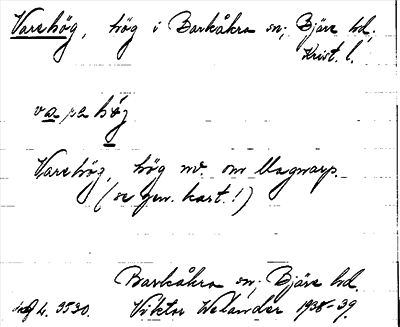 Varshög, hög i Barkåkra sn; Bjäre hd;
Krist. l.
va ꞃɛ hög
Varshög, hög nv. om Magnarp.
(se gen. kart.!)
Barkåkra sn; Bjäre hd.
Viktor Welander 1938-39
4. 3530.